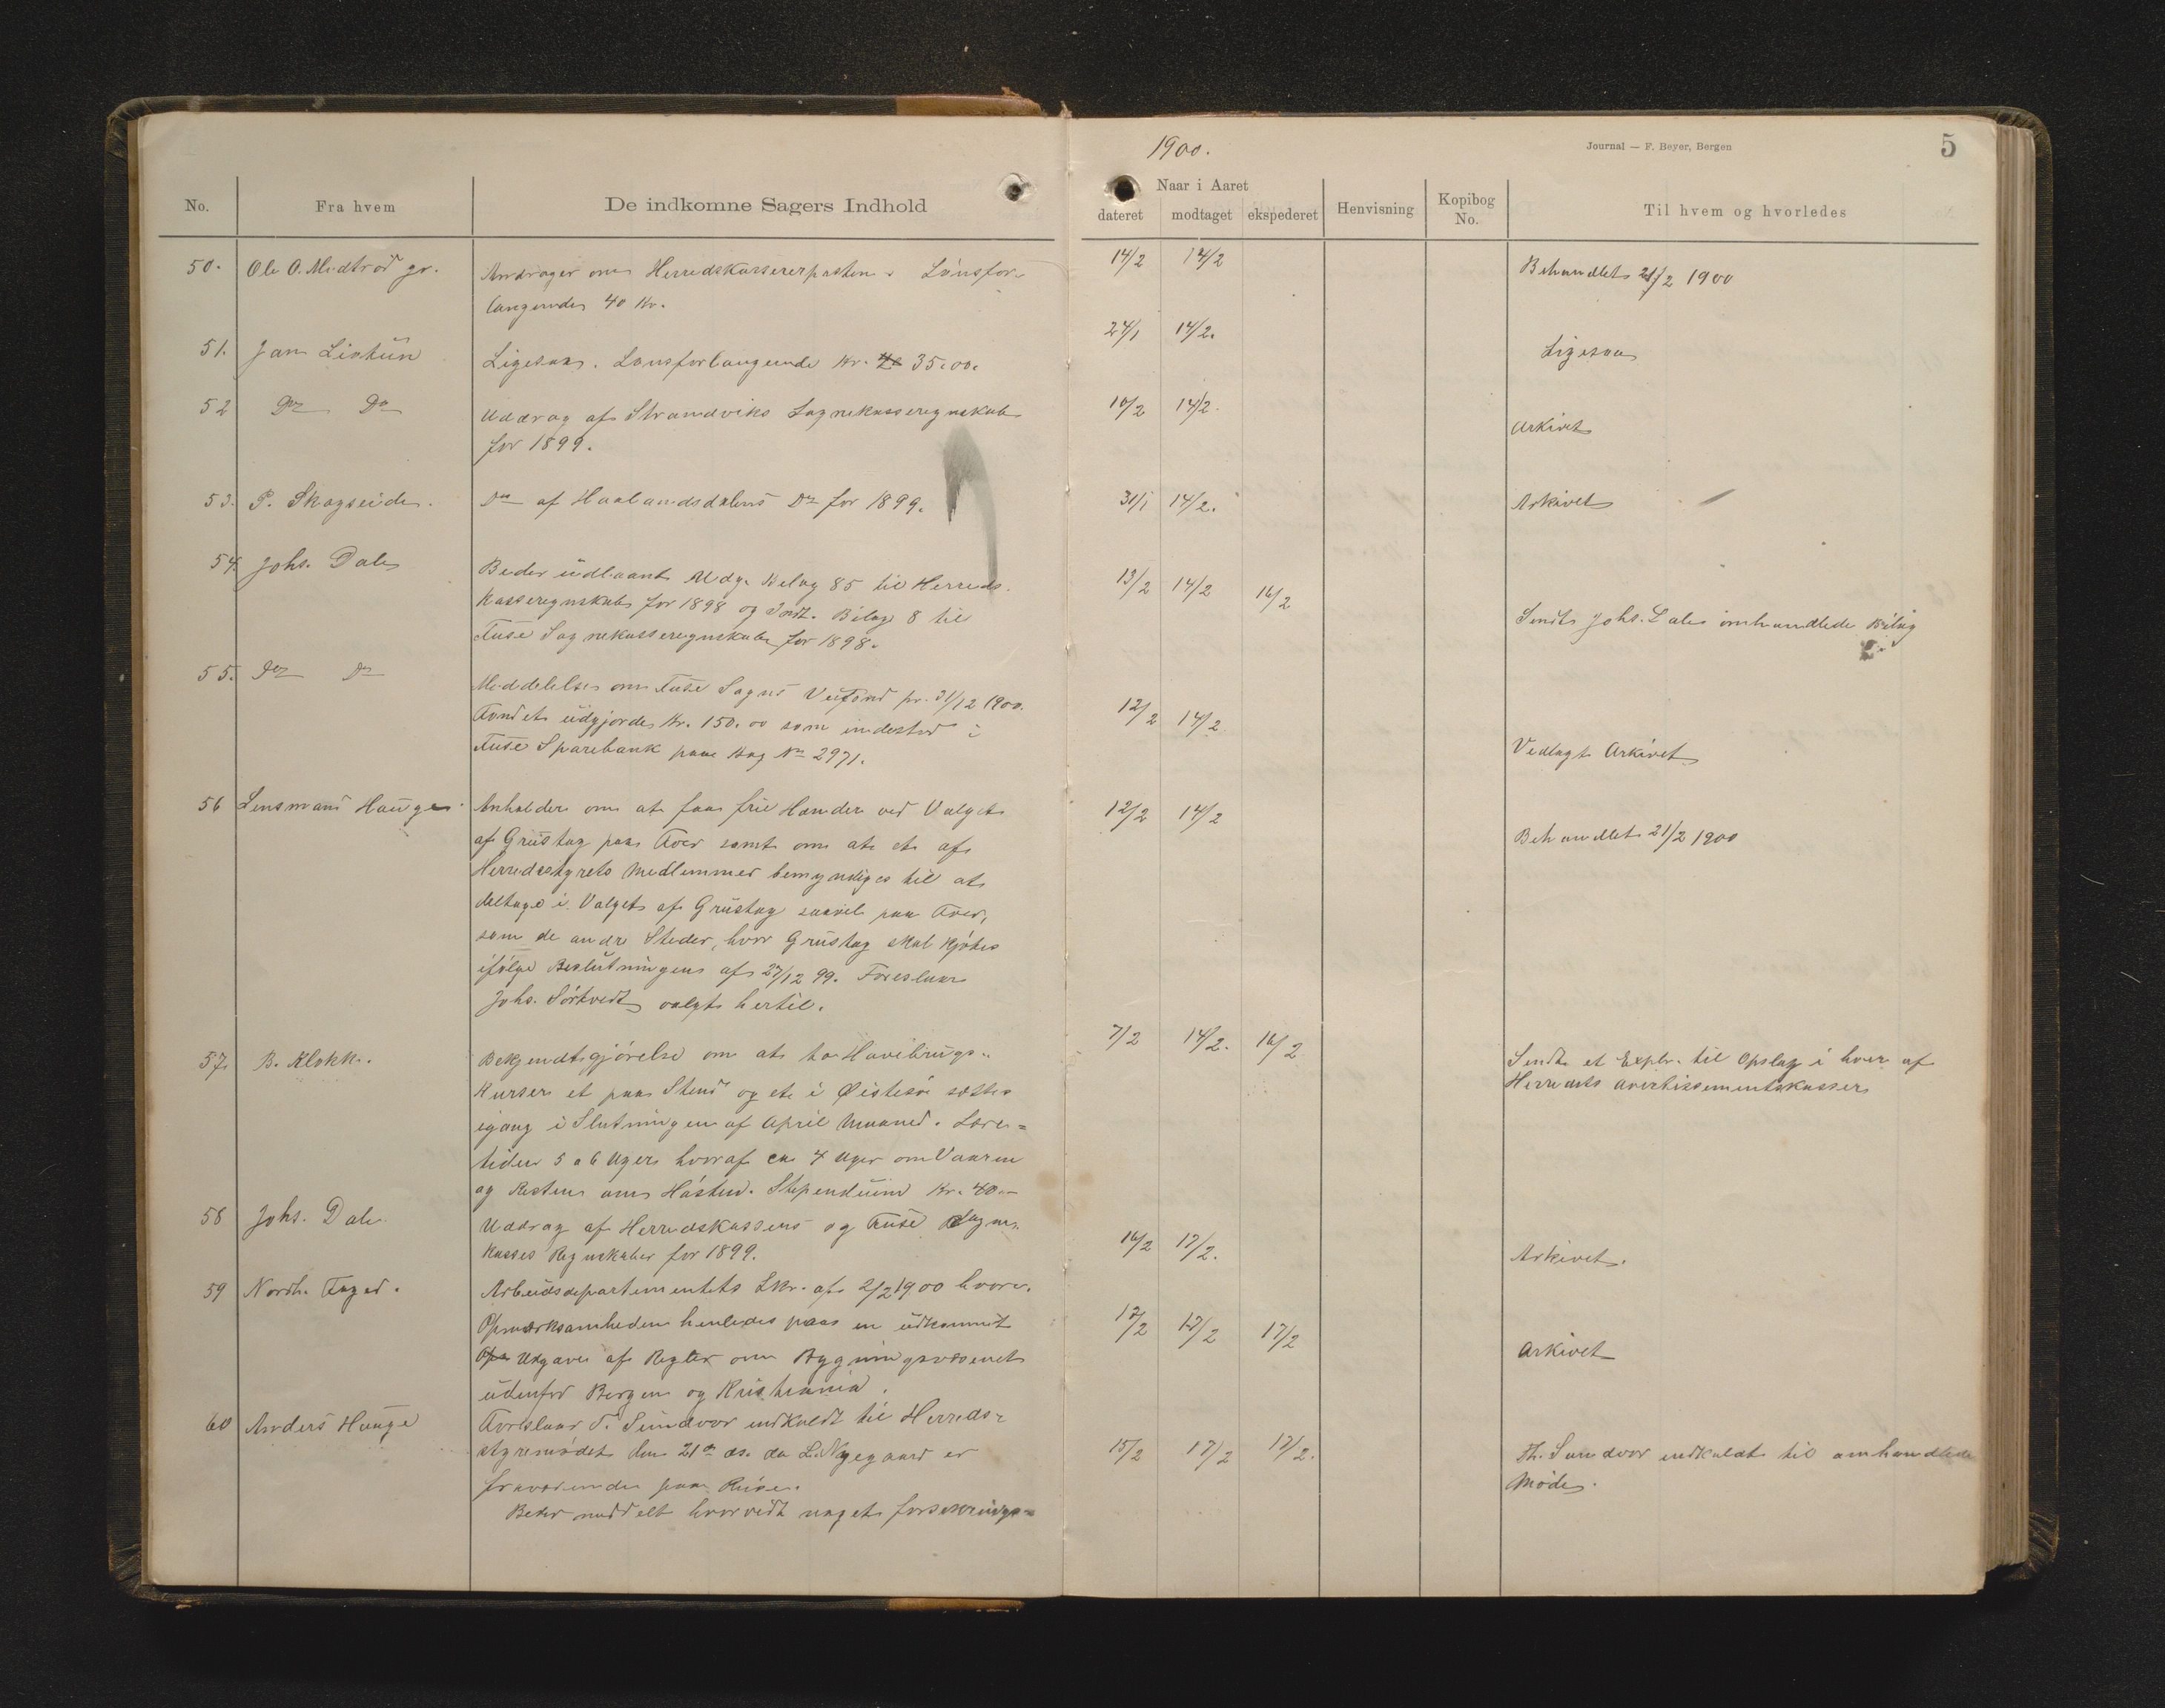 1900.
Journal — F. Beyer, Bergen
5
No.
Fra hvem
De indkomne Sagers Indhold
Naar i Aaret
dateret
modtaget
ekspederet
Henvisning
Kopibog No.
Til hvem og hvorledes
50. Ole O. Midtrød gr. Andrager om Herredskassererposten. Lønsfor- 14/2 14/2 Behandlet 21/2 1900
langende 40 Kr.
51. Jan Liøtün Ligesaa. Lønsforlangende Kr. 35.00. 24/1 14/2. Ligesaa
52 Do Do Uddrag af Strandviks Sognekasseregnskab 10/2 14/2. Arkivet
for 1899.
53. P. Skogseide. Do af Haalandsdalens Do for 1899. 31/1 14/2. Arkivet
54. Johs. Dale Beder udlaant Udg. Bilag 85 til Herreds- 13/2 14/2 16/2 Sendt Johs. Dale omhandlede Bilag
Kasseregnskab for 1898 og Indt. Bilag 8 til
Fuse Sognekasseregnskab for 1898.
55. Do Do Meddelelse om Fuse Sogns Veifond pr. 31/12 1900. 12/2 14/2 Vedlagt Arkivet
Fondet udgjorde Kr. 150.00 som indestod i
Fuse Sparebank paa Bog No 2971.
56 Lensmand Hauge Anholder om at faa frie Hænder ved Valget 12/2 14/2 Behandlet 21/2 1900
af Grustag paa samt om at et af
Herredsstyrets Medlemmer bemyndiges til at
deltage i Valget af Grustag saavel paa
som de andre Steder, hvor Grustag skal kjøbes
ifølge Beslutningen af 27/12 99. Foreslaar
Johs. Sørtvedt valgt hertil.
57. B. Klokk. Bekjendtgjørelse om at to Havebrugs- 7/2 14/2. 16/2 Sendt et Explr. til Opslag i hver af
Kurser et paa Stend og et i Øistesø sættes Herredets Avertissementskasser
igang i Slutningen af April Maaned. Lære-
tiden 5 a 6 Uger hvoraf ca 4 Uger om Vaaren
og Resten om Høsten. Stipendium Kr. 40.-
58 Johs. Dale. Uddrag af Herredskassens og Fuse Sogne- 16/2 17/2. Arkivet.
kasses Regnskaber for 1899.
59 Nordh. Foged. Arbeidsdepartementets Skr. af 2/2 1900 hvori 17/2 17/2 17/2 Arkivet
Opmærksomheden henledes paa en udkommet
Udgave af Regler om Bygningsvæsenet
udenfor Bergen og Kristiania.
60 Anders Hauge Foreslaar T. Sundvor indkaldt til Herreds- 15/2 17/2 17/2. Th. Sundvor indkaldt til omhandlede
styremødet den 21de ds. da L. Nygaard er Møde.
fraværende paa Reise.
Beder meddelt hvorvidt noget forsikrings-